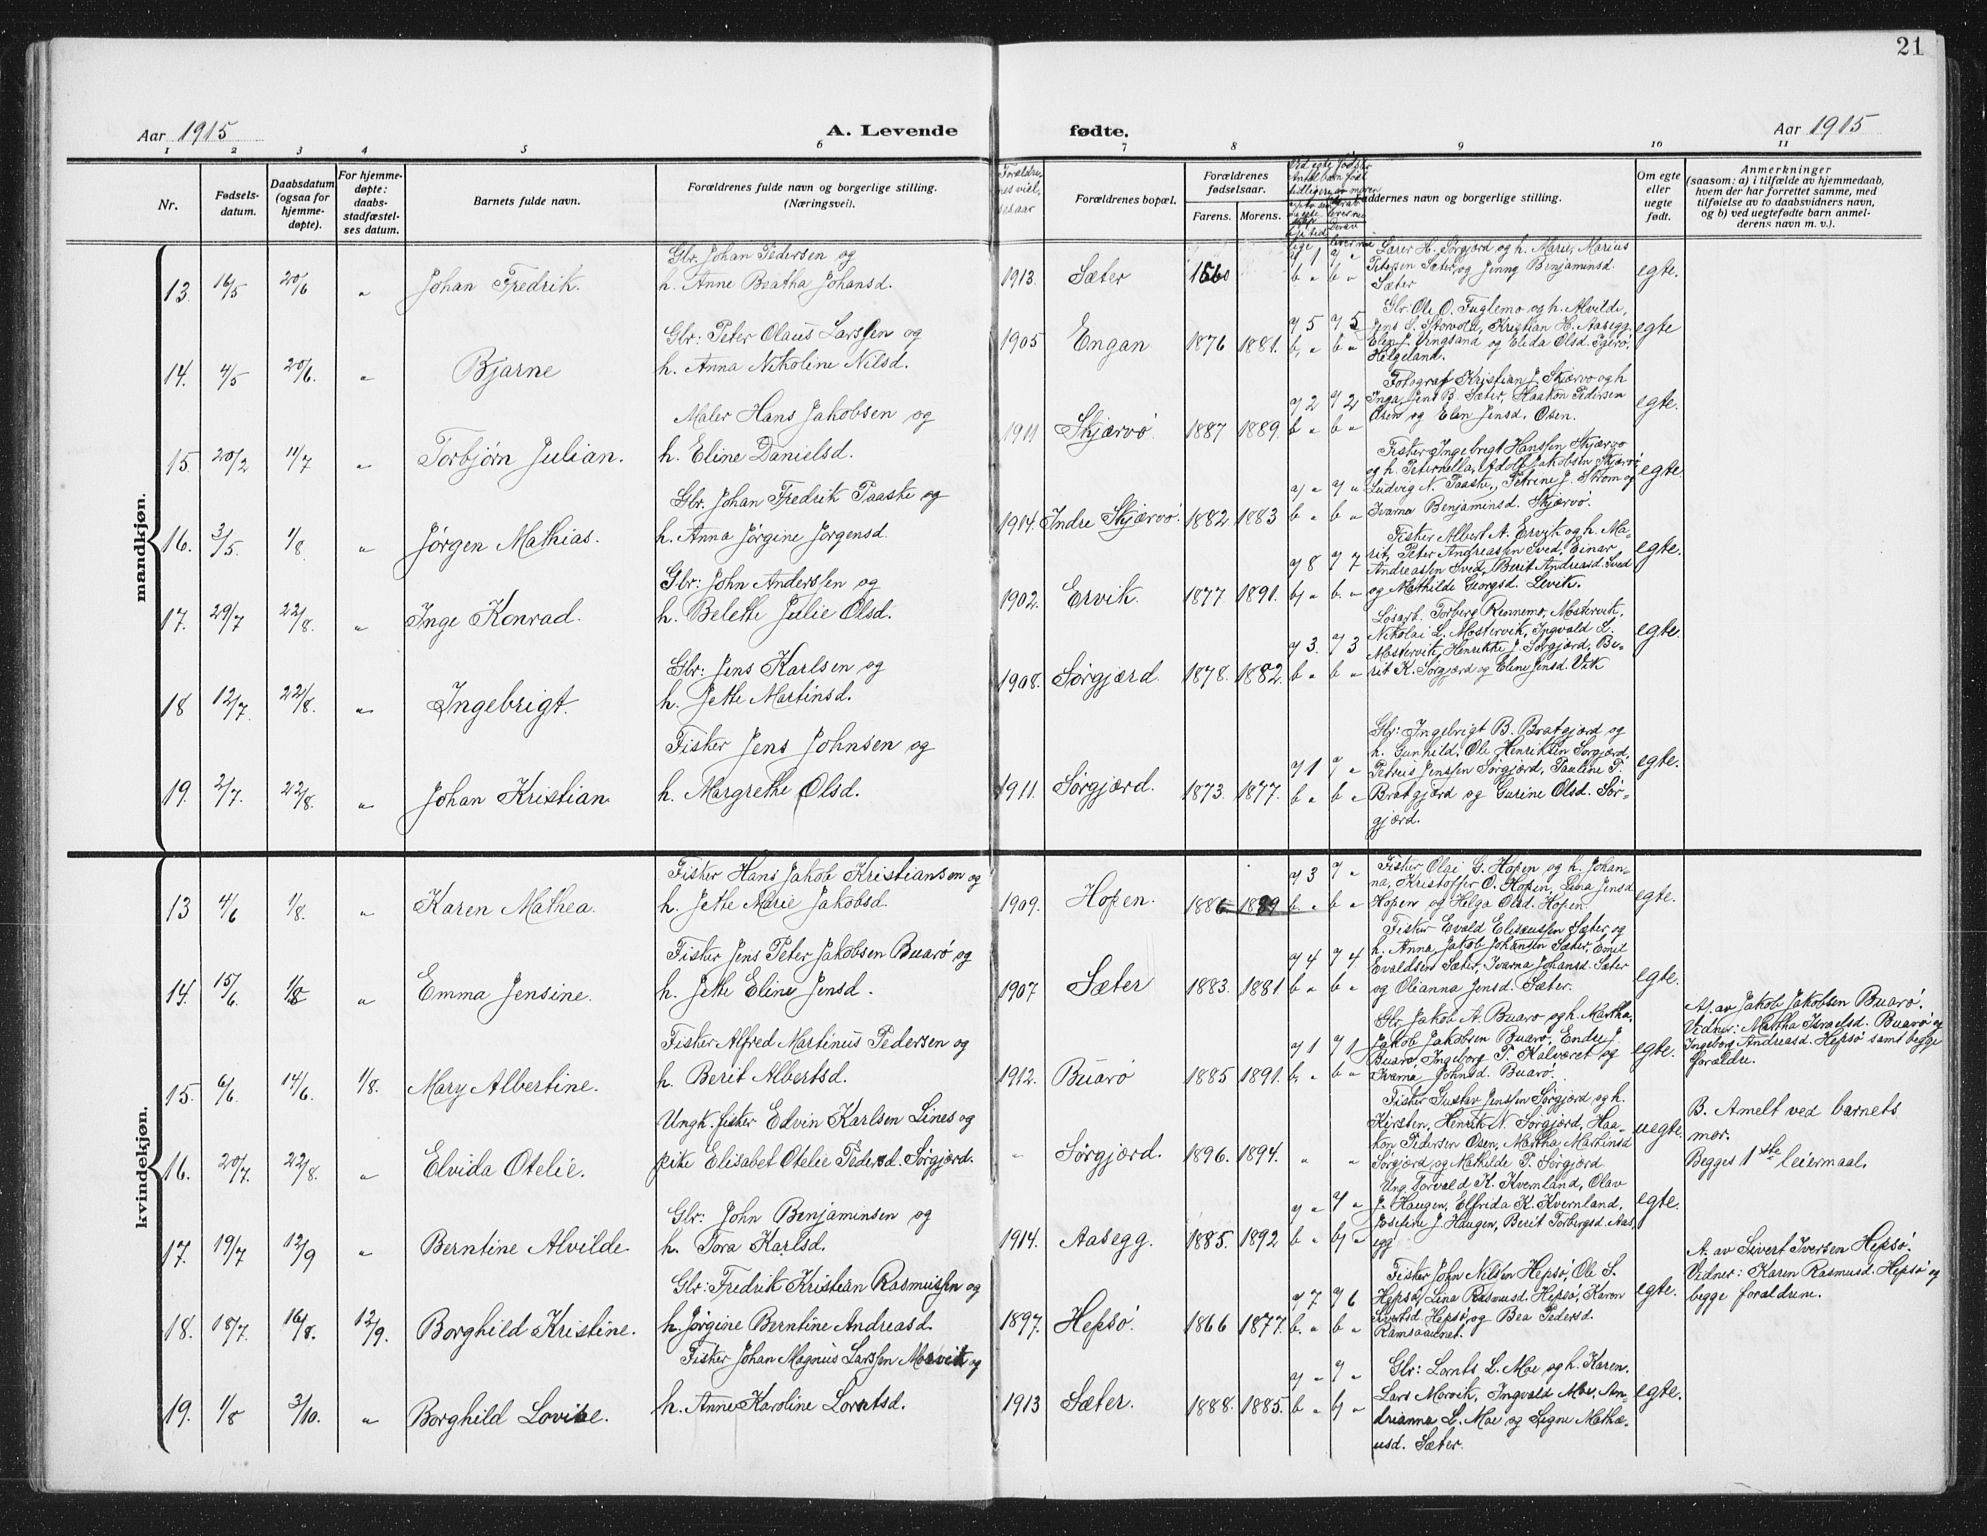 21
Aar 1915
A. Levende
fødte.
Aar 1915
1 2 3 4 5 6 7 8 9 10 11
Nr.
Fødsels-
datum.
Daabsdatum
(ogsaa for
hjemme-
døpte).
For hjemme-
døpte:
daabs-
stadfæstel-
ses datum.
Barnets fulde navn.
Forældrenes fulde navn og borgerlige stilling.
(Næringsvei).
Forældrenes bopæl.
Forældrenes
fødselsaar.
Farens.
Morens.
Faddernes navn og borgerlige stilling.
Om egte
eller
uegte
født.
Anmerkninger
(saasom: a) i tilfælde av hjemmedaab,
hvem der har forrettet samme, med
tilføielse av to daabsvidners navn,
og b) ved uegtefødte barn anmel-
derens navn m. v.).
mandkjøn.
13. 16/5 20/6 „ Johan Fredrik.
Gbr. Johan Pedersen og
h. Anne Beatha Johansd.
1913. Sæter
Petersen Sæter, og Jenny Benjaminsd.
Sæter
egte
14. 4/5 20/6. „ Bjarne
Gbr: Peter Olaus Larssen og
h. Anna Nikoline Nilsd.
1905 Engan 1876 1881.
Gbr Ole O. Fuglemo og h. Alvilde,
Jens S. Storvold, Kristian H. Aasegg.
Helgeland.
egte
15 20/2 11/7 „ Torbjørn Julian.
Maler Hans Jakobsen og
h. Eline Danielsd.
1911 Skjærvø. 1887 1889.
Fotograf Kristian J. Skjærvø og h
Inga, Jens B. Sæter, Haakon Pedersen
Osen og Elen Jensd. Osen.
egte.
16. 3/5. 1/8 „ Jørgen Mathias.
Gbr. Johan Fredrik Paaske og
h. Anna Jørgine Jørgensd.
1914. Indre Skjærvø. 1882 1883
Fisker Ingebrigt Hanssen Skjærvø
og h. Peternella, Adolf Jakobsen Skjærvø,
Ludvig N. Paaske, Petrine J. Strøm og
Ivarna Benjaminsd. Skjærvø.
egte.
17. 29/7 22/8. „ Inge Konrad.
Gbr: John Anderssen og
h. Belette Julie Olsd.
1902. Ervik. 1877. 1891.
Fisker Albert A. Ervik og h. Ma-
rit, Peter Andreassen Sved, Einar
Andreassen Sved, Berit Andreasd. Sved
og Mathilde Georgsd. Levik.
egte.
18 12/7. 22/8. „ Ingebrigt.
Gbr: Jens Karlsen og
h. Jette Martinsd.
1908. Sørgjærd 1878. 1882.
Nikolai L. Mostervik, Ingvald L.
Mostervik, Henrikke J. Sørgjærd, Be-
rit K. Sørgjærd og Eline Jensd. Vik
egte.
19. 2/7. 22/8. „ Johan Kristian
Fisker Jens Johnsen og
h. Margrethe Olsd.
1911. Sørgjærd. 1873. 1877.
Gbr: Ingebrigt B. Bratgjærd og
h. Gunhild, Ole Henriksen Sørgjærd,
Petrus Jenssen Sørgjærd, Pauline P.
Bratgjærd og Gurine Olsd. Sør-
gjærd.
egte.
kvindekjøn.
13 4/6 1/8. „ Karen Mathea.
Fisker Hans Jakob Kristiansen og
h. Jette Marie Jakobsd.
1909. Hopen.
Fisker Olai G. Hopen og h. Johan-
na, Kristoffer O. Hopen, Lina Jensd
Hopen og Helga Olsd. Hopen.
egte.
14. 15/6. 1/8 „ Emma Jensine.
Fisker Jens Peter Jakobsen Buarø og
h. Jette Eline Jensd.
1907 Sæter 1883. 1881
Fisker Evald Eliseussen Sæter og
h. Anna Jakob Johansen Sæter, Emil
Evaldsen Sæter, Ivarna Johansd. Sæter
og Olianna Jensd. Sæter.
egte.
15. 6/6. 14/6. 1/8. Mary Albertine.
Fisker Alfred Martinus Pedersen og
h. Berit Albertsd.
1912. Buarø 1885 1891.
Gbr Jakob A. Buarø og h. Martha.
Jakob Jakobsen Buarø, Endre J.
Buarø, Ingeborg P. Kalværet og
Ivarna Johnsd. Buarø.
egte.
A. av Jakob Jakobsen Buarø.
Vidner: Martha Israelsd. Buarø og
Ingeborg Andreasd. Hepsø samt begge
forældre.
16. 20/7. 22/8. „ Elvida Otelie.
Ungk. fisker Edvin Karlsen Lines og
pike Elisabet Otelie Pedersd. Sørgjærd.
Sørgjærd. 1896. 1894.
Fisker Gustav Jenssen Sørgjærd og h.
Kirsten, Henrik N. Sørgjærd, Haa-
kon Pedersen Osen, Martha Martinsd
Sørgjærd, og Mathilde P. Sørgjærd
uegte.
B. Amelt ved barnets
mor.
Begges 1ste leiermaal.
17. 19/7 12/9 „ Berntine Alvilde
Gbr: John Benjaminsen og
h. Tora Karlsd.
1914. Aasegg. 1885. 1892
Ung. Torvald K. Kvernland, Olav
J. Haugen, Elfrida K. Kvernland,
Josefine J. Haugen, Berit Torbergsd. Aas-
egg
egte.
18. 18/7 16/8. 12/9. Borghild Kristine.
Gbr: Fredrik Kristian Rasmussen og
h. Jørgine Berntine Andreasd.
1897. Hepsø. 1866 1877.
Fisker John Nilsen Hepsø, Ole S.
Hepsø, Lina Rasmusd. Hepsø, Karen
Sivertsd Hepsø, og Bea Pedersd.
Ramsaunet.
egte.
A. av Sivert Iversen Hepsø.
Vidner: Karen Rasmusd. Hepsø og
begge forældrene.
19. 1/8 3/10. „ Borghild Lovise.
Fisker Johan Magnus Larssen Morvik og
h. Anne Karoline Lorntsd.
1913 Sæter. 1888. 1885.
Gbr: Lornts L. Moe og h. Karen.
Lars Morvik, Ingvald Moe, An-
drianna L. Moe og Signe Mathæ-
usd. Sæter.
egte.